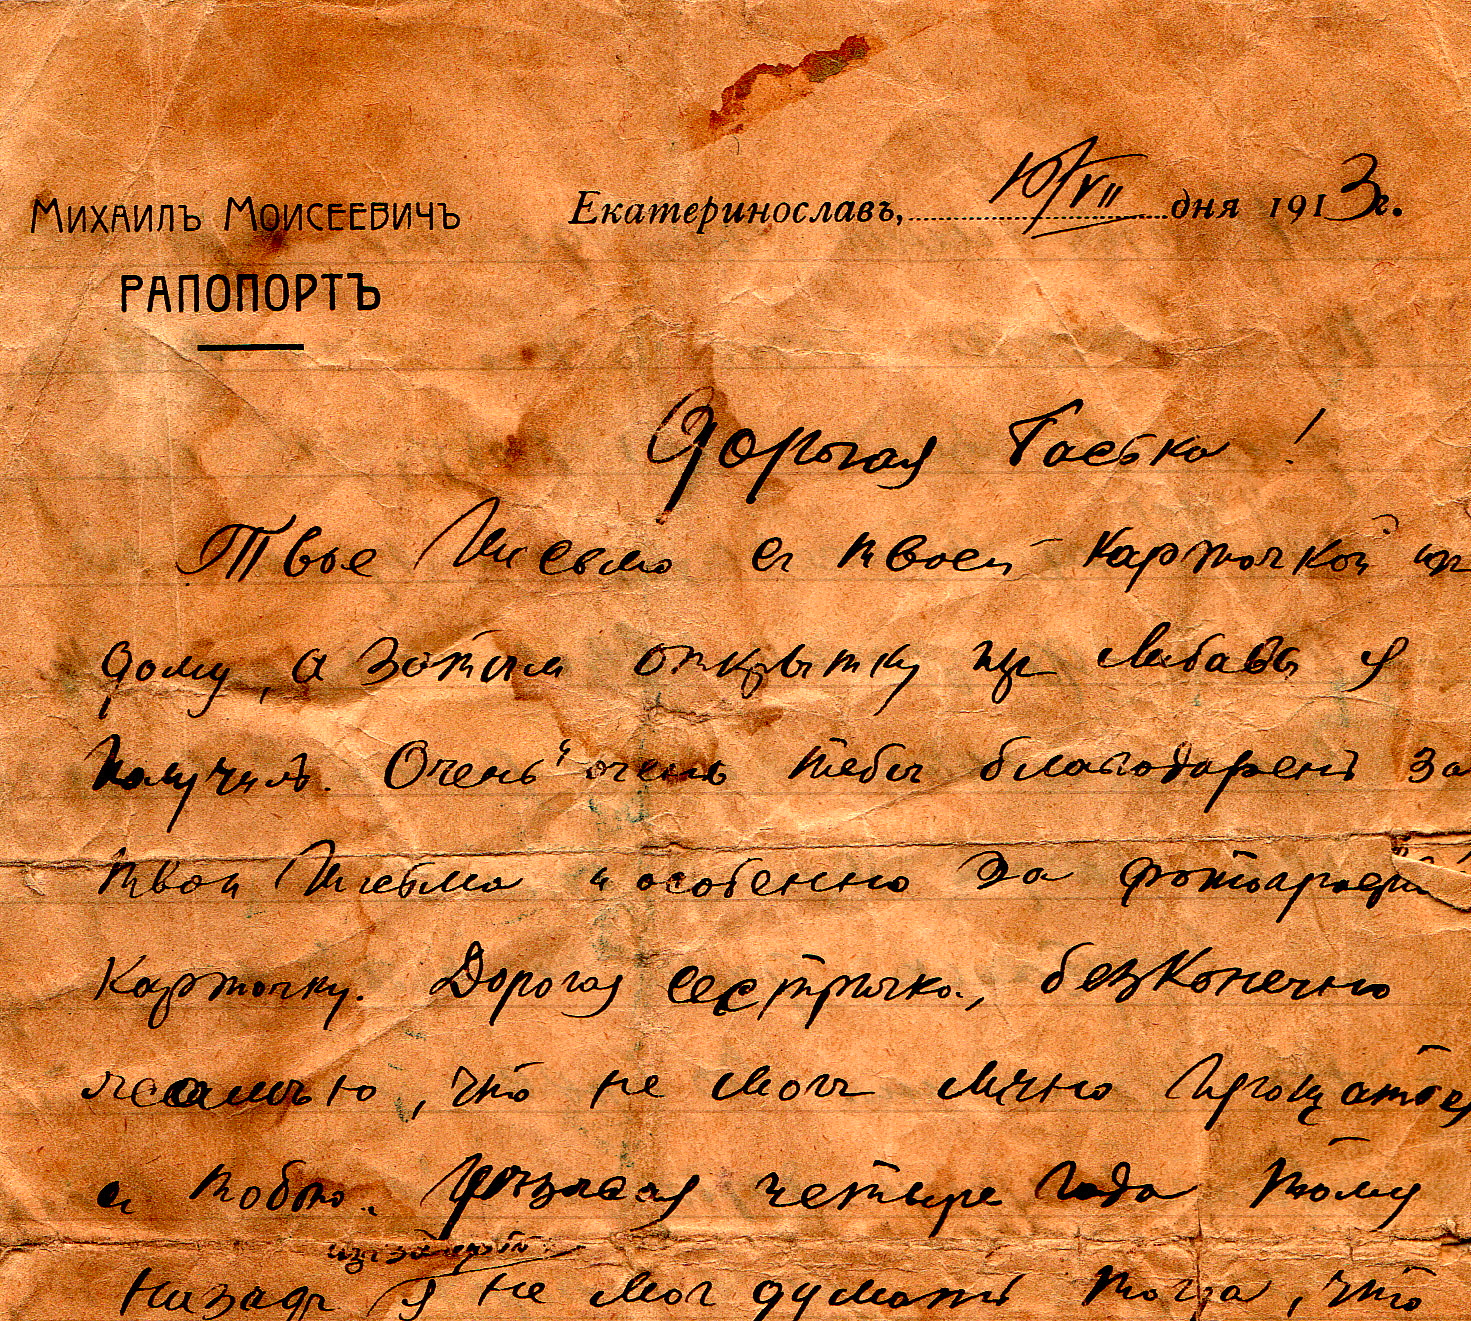 Михаилъ Моисеевичъ
Рапопортъ
Екатеринославъ, 10/VII дня 1913 г.
Дорогая !
Твое письмо съ твоей карточкой из
дому, а затѣм открытку из Либавы я
получилъ. Очень очень тебѣ благодаренъ за
твои письма и особенно за фотографич
карточку. Дорогая сестричка, безконечно
жалѣю, что не могъ лично прощаться
съ тобою. четыре года тому
назадъ я не мог думать тогда, что